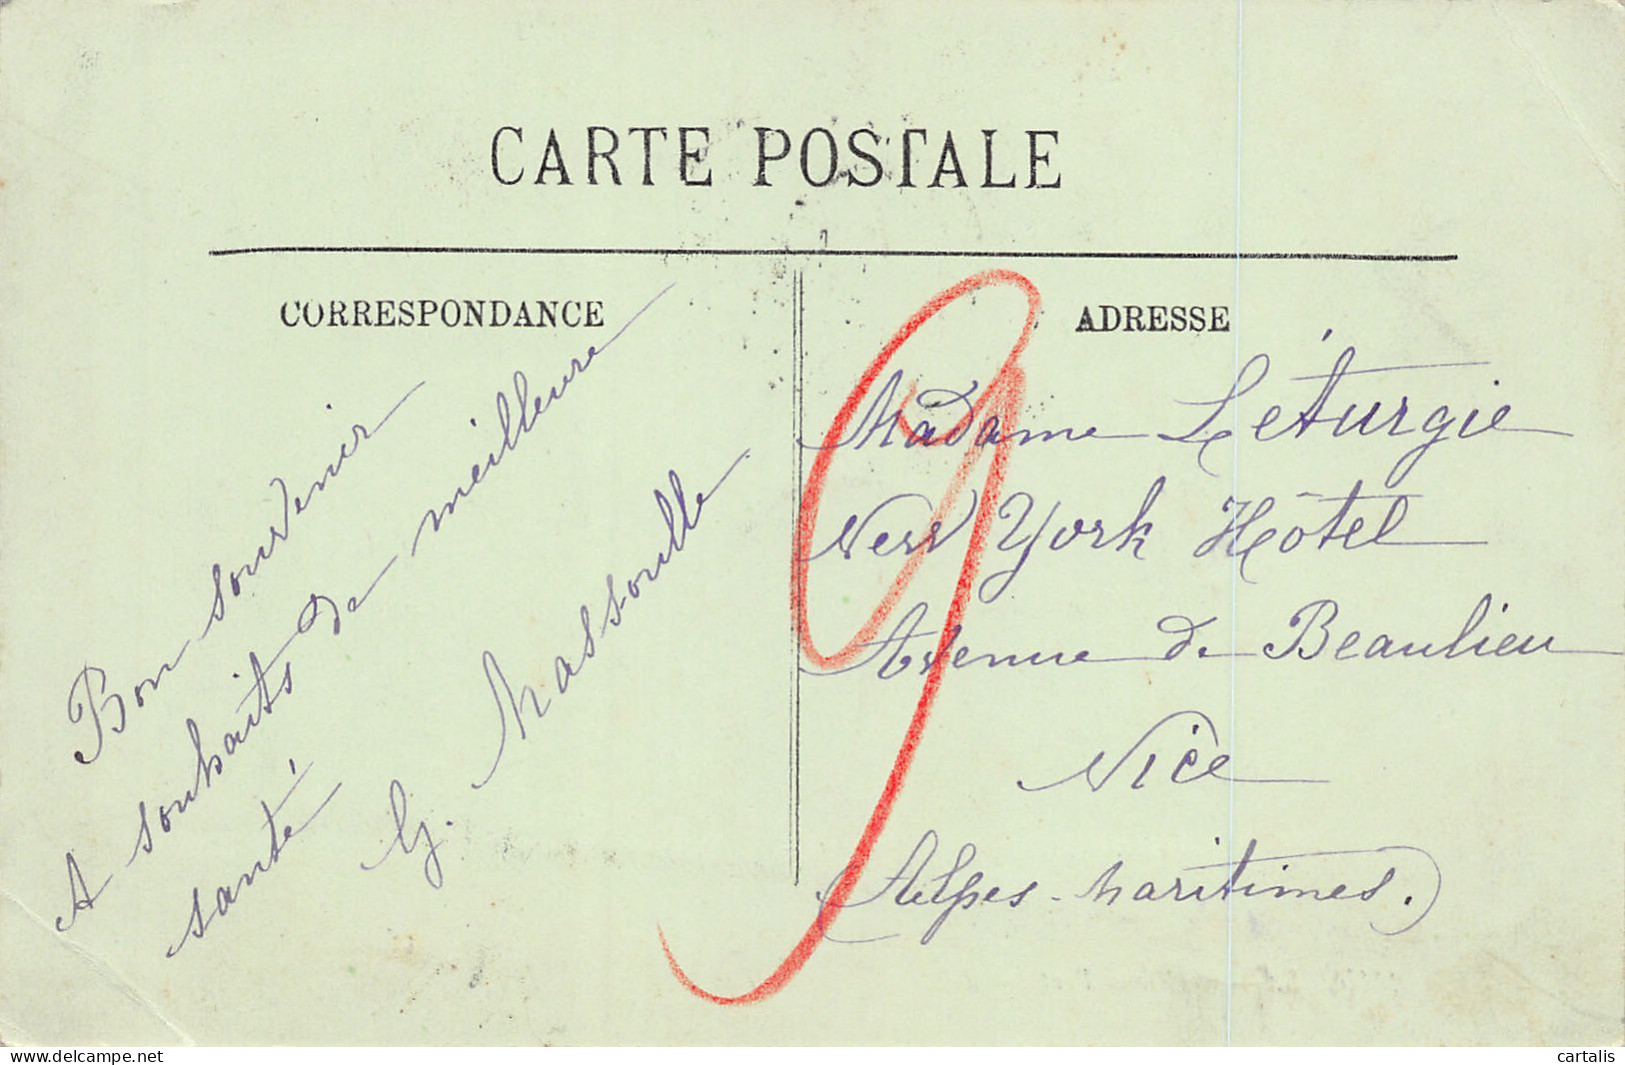 CARTE POSTALE
CORRESPONDANCE
Bon souvenir
A souhaits de meilleure
santé
G. Massoulle
ADRESSE
9
Madame Léturgie
New York Hôtel
Avenue de Beaulieu
Nice
(Alpes-Maritimes.)
www.delcampe.net
cartalis